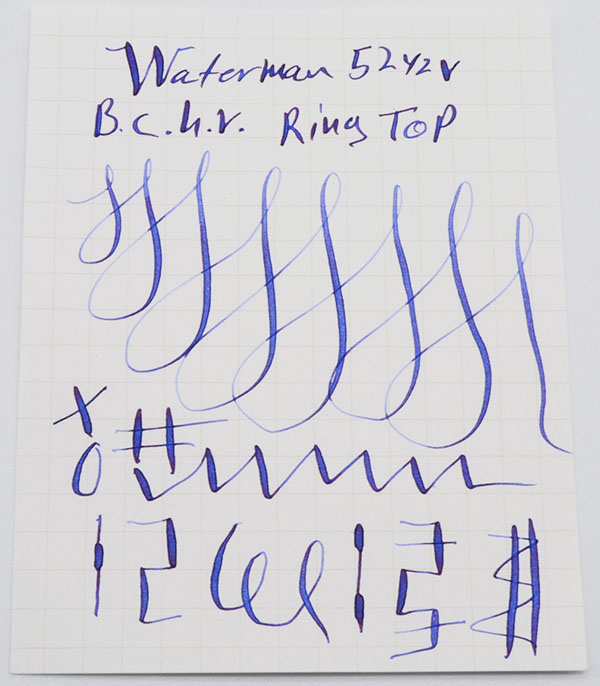 Waterman 52 1/2 v
B.C.h.r. Ring ToP
X
O #